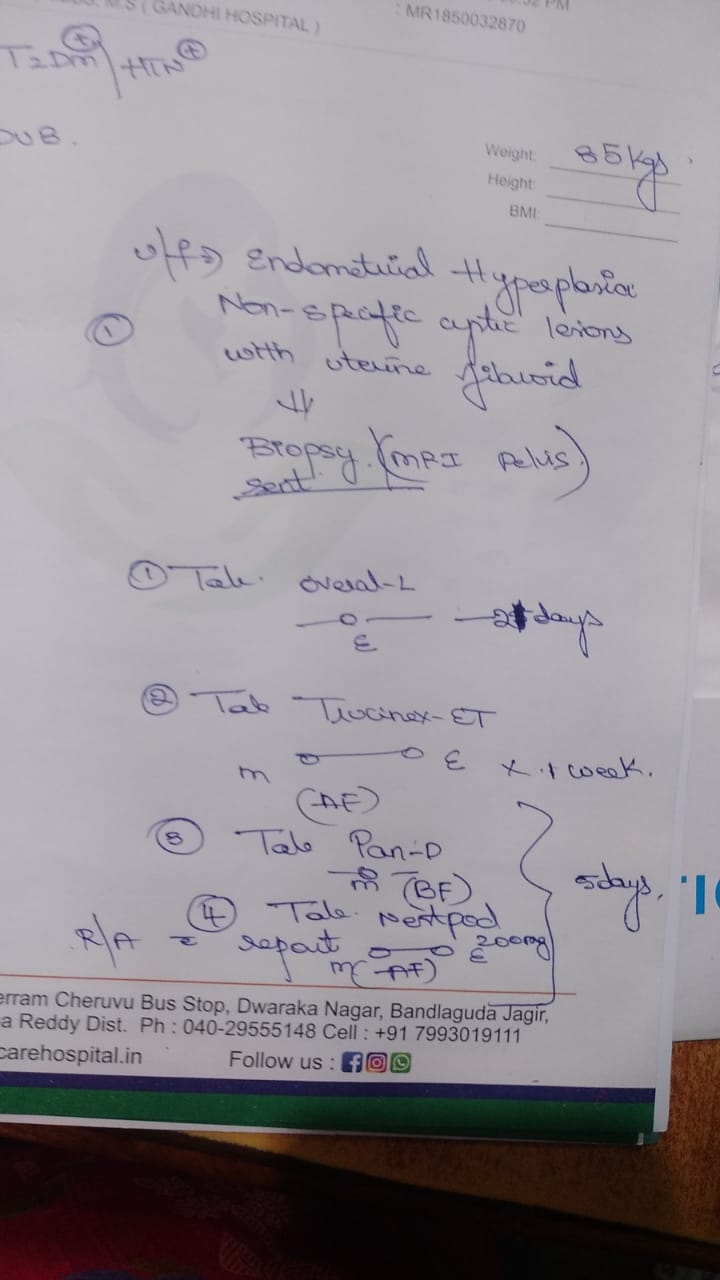 M.S ( GANDHI HOSPITAL )
: MR1850032870
PM
T2DM + / HTN +
DUB.
Weight: 85 kgs
Height:
BMI:
① u/f→ Endometrial Hyperplasia
Non-specific cystic lesions
with uterine fibroid
⇓
Biopsy. (MRI Pelvis)
sent
① Tab. Overal-L
—o— — 21 days
E
② Tab
-ET
M o—o E x 1 week.
(AF)
③ Tab Pan-D
M (BF)
5 days.
④ Tab.
200mg
o—o E
M (AF)
R/A c report
erram Cheruvu Bus Stop, Dwaraka Nagar, Bandlaguda Jagir,
a Reddy Dist. Ph : 040-29555148 Cell : +91 7993019111
carehospital.in Follow us :